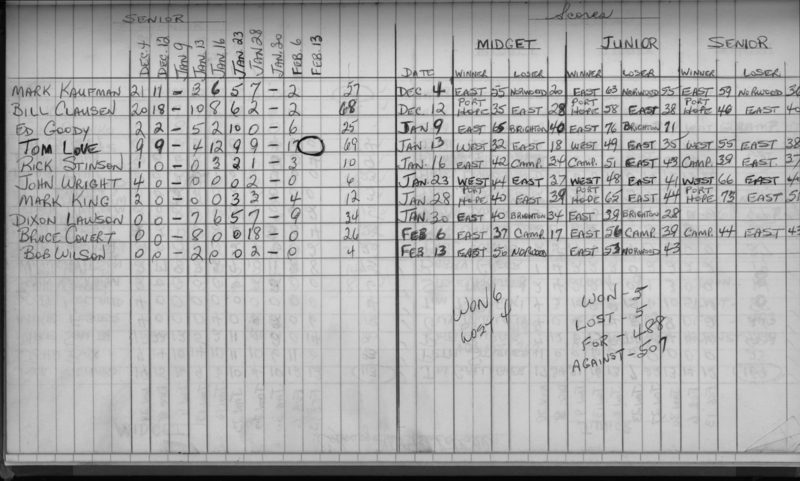 SENIOR
DEC. 4 DEC. 12 JAN. 9 JAN. 13 JAN. 16 JAN. 23 JAN. 28 JAN. 30 FEB. 6 FEB. 13
MARK KAUFMAN 21 11 - 3 6 5 7 - 2 57
BILL CLAUSEN 20 18 - 10 8 6 2 - 2 68
ED GOODY 2 2 - 5 2 10 0 - 6 25
TOM LOVE 9 9 - 4 12 9 9 - 17 69
RICK STINSON 1 0 - 0 3 2 1 - 3 10
JOHN WRIGHT 4 0 - 0 0 0 2 - 0 6
MARK KING 2 0 - 0 0 3 3 - 4 12
DIXON LAWSON 0 0 - 7 6 5 7 - 9 34
BRUCE COVERT 0 0 - 8 0 0 18 - 0 26
BOB WILSON 0 0 - 2 0 0 2 - 0 4
Scores
MIDGET JUNIOR SENIOR
DATE WINNER LOSER WINNER LOSER WINNER LOSER
DEC. 4 EAST 55 NORWOOD 20 EAST 63 NORWOOD 55 EAST 59 NORWOOD 36
DEC. 12 PORT HOPE 35 EAST 28 PORT HOPE 58 EAST 38 PORT HOPE 46 EAST 40
JAN 9 EAST 65 BRIGHTON 40 EAST 76 BRIGHTON 71
JAN. 13 WEST 32 EAST 18 WEST 49 EAST 35 WEST 55 EAST 38
JAN. 16 EAST 42 CAMP. 34 CAMP. 51 EAST 45 CAMP. 39 EAST 37
JAN. 23 WEST 44 EAST 37 WEST 48 EAST 41 WEST 66 EAST
JAN. 28 PORT HOPE 40 EAST 39 PORT HOPE 65 EAST 44 PORT HOPE 75 EAST 51
JAN. 30 EAST 40 BRIGHTON 34 EAST 39 BRIGHTON 28
FEB 6 EAST 37 CAMP. 17 EAST 56 CAMP. 39 CAMP. 44 EAST 43
FEB 13 EAST 50 NORWOOD EAST 53 NORWOOD 43
WON 6
LOST 4
WON - 5
LOST - 5
FOR - 488
AGAINST - 507